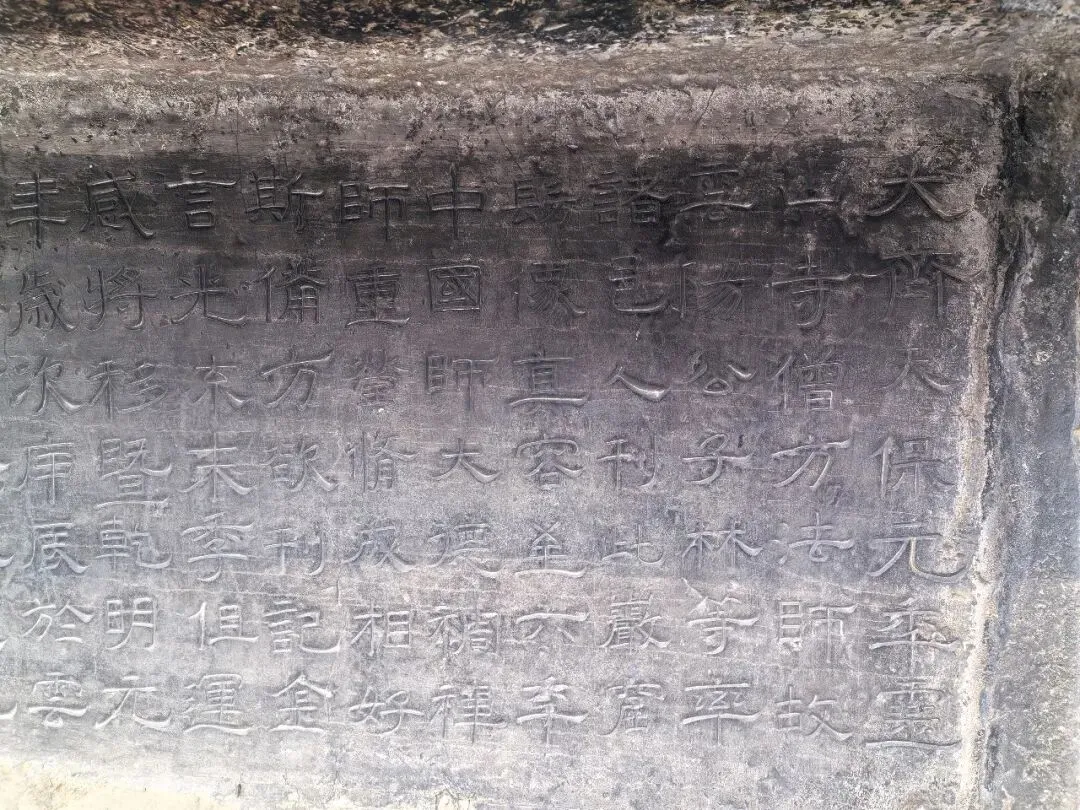 大齊天保元年靈
山寺僧方法師故
雲陽公子林等率
諸邑人刊此巖窟
髣象真容至六年
中國師大德稠禪
師重瑩脩成相好
斯備方欲刊記金
言光流末季但運
感將移暨乾明元
年歲次庚辰於雲